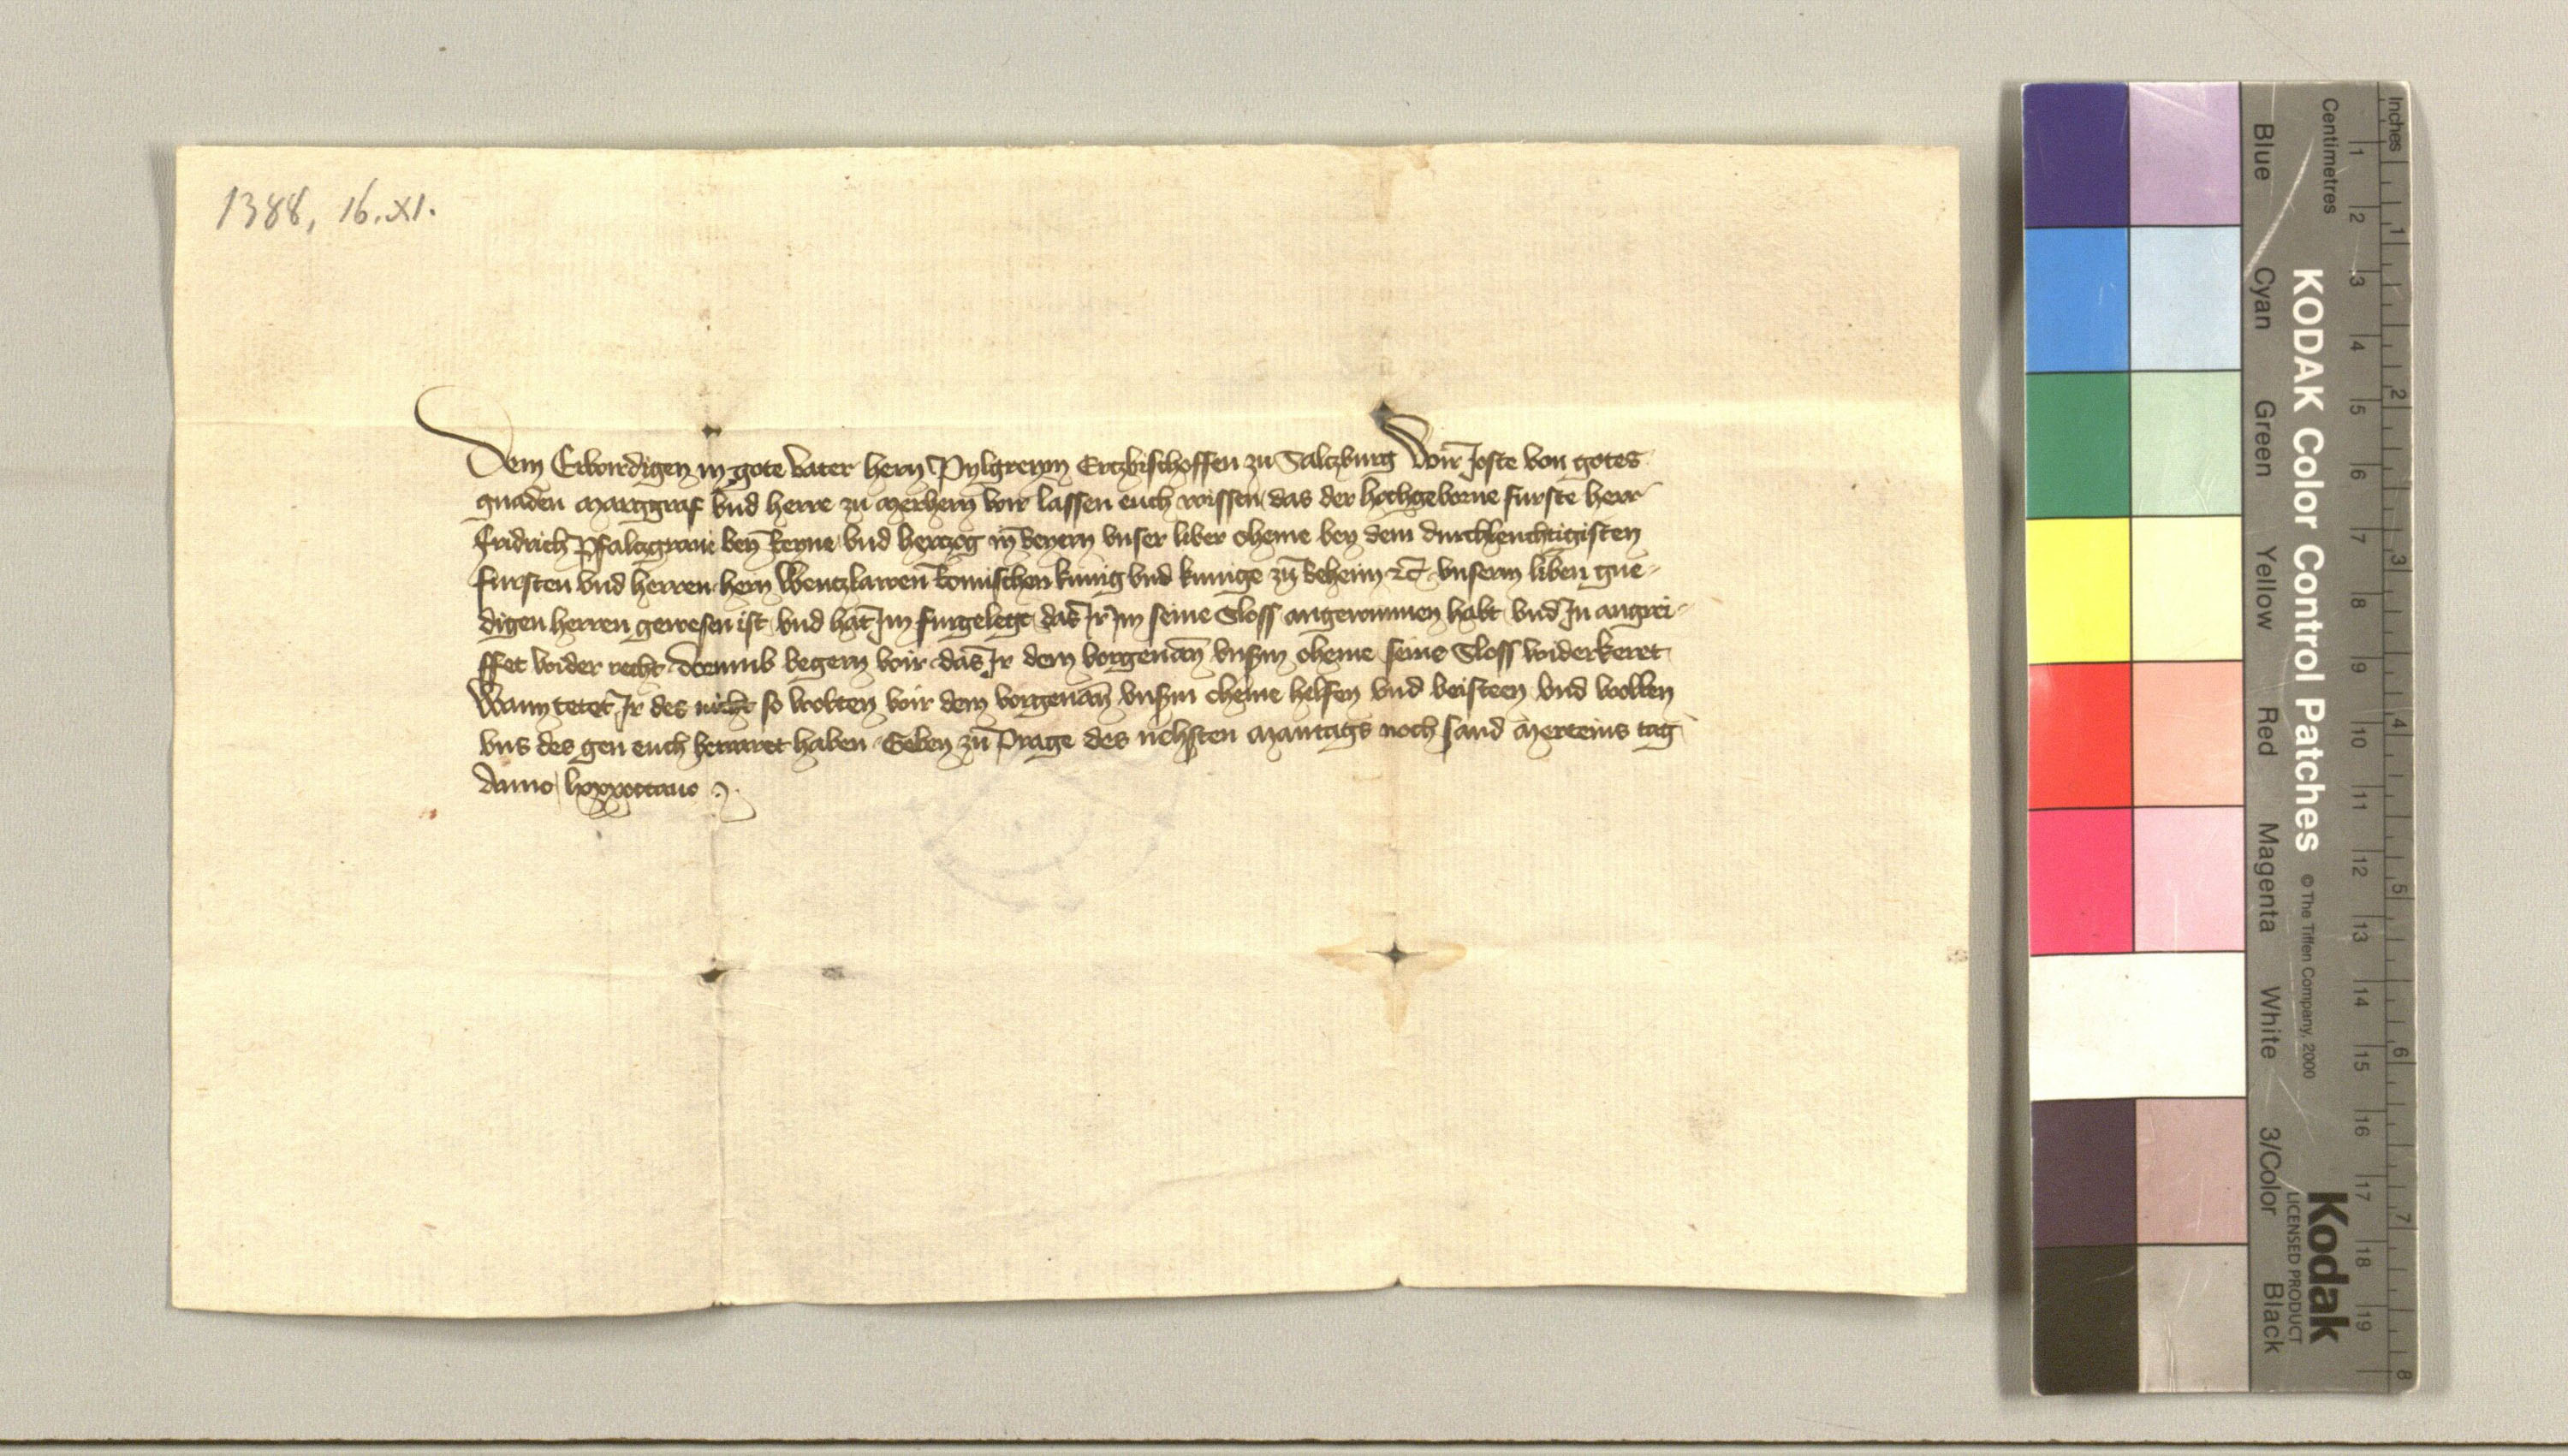 1388, 16.XI.
Dem Erwirdigen in gote vater hern Pylgreym Ertzbischoffen zu Salczburg Wir Joste von gotes
gnaden Marggraf vnd herre zu Merhern wir lassen euch wissen das der hochgeborne furste herr
fridrich Pfalczgraue bey Reyne vnd herczog in Beyern vnser liber oheme bey dem durchleuchtigisten
fursten vnd herren hern Wenczlawen Romischen kunig vnd kunige zu Beheim etc vnserm liben gne-
digen herren gewesen ist vnd hat Im furgelegt das Ir Im seine Sloss angewunnen habt vnd In angrei-
ffet wider recht dorumb begern wir das Ir dem vorgenan vnsm oheme seine Sloss widerkeret
Wann tetet Ir des nicht so wolten wir dem vorgenan vnsm oheme helfen vnd beisteen vnd wollen
vns des gen euch bewaret haben Geben zu Prage des nehsten Mantags noch sand Merteins tag
Anno lxxxoctauo
Inches
Centimetres
1 2 3 4 5 6 7 8
1 2 3 4 5 6 7 8 9 10 11 12 13 14 15 16 17 18 19
KODAK Color Control Patches © The Tiffen Company, 2000
Kodak
LICENSED PRODUCT
Blue Cyan Green Yellow Red Magenta White 3/Color Black